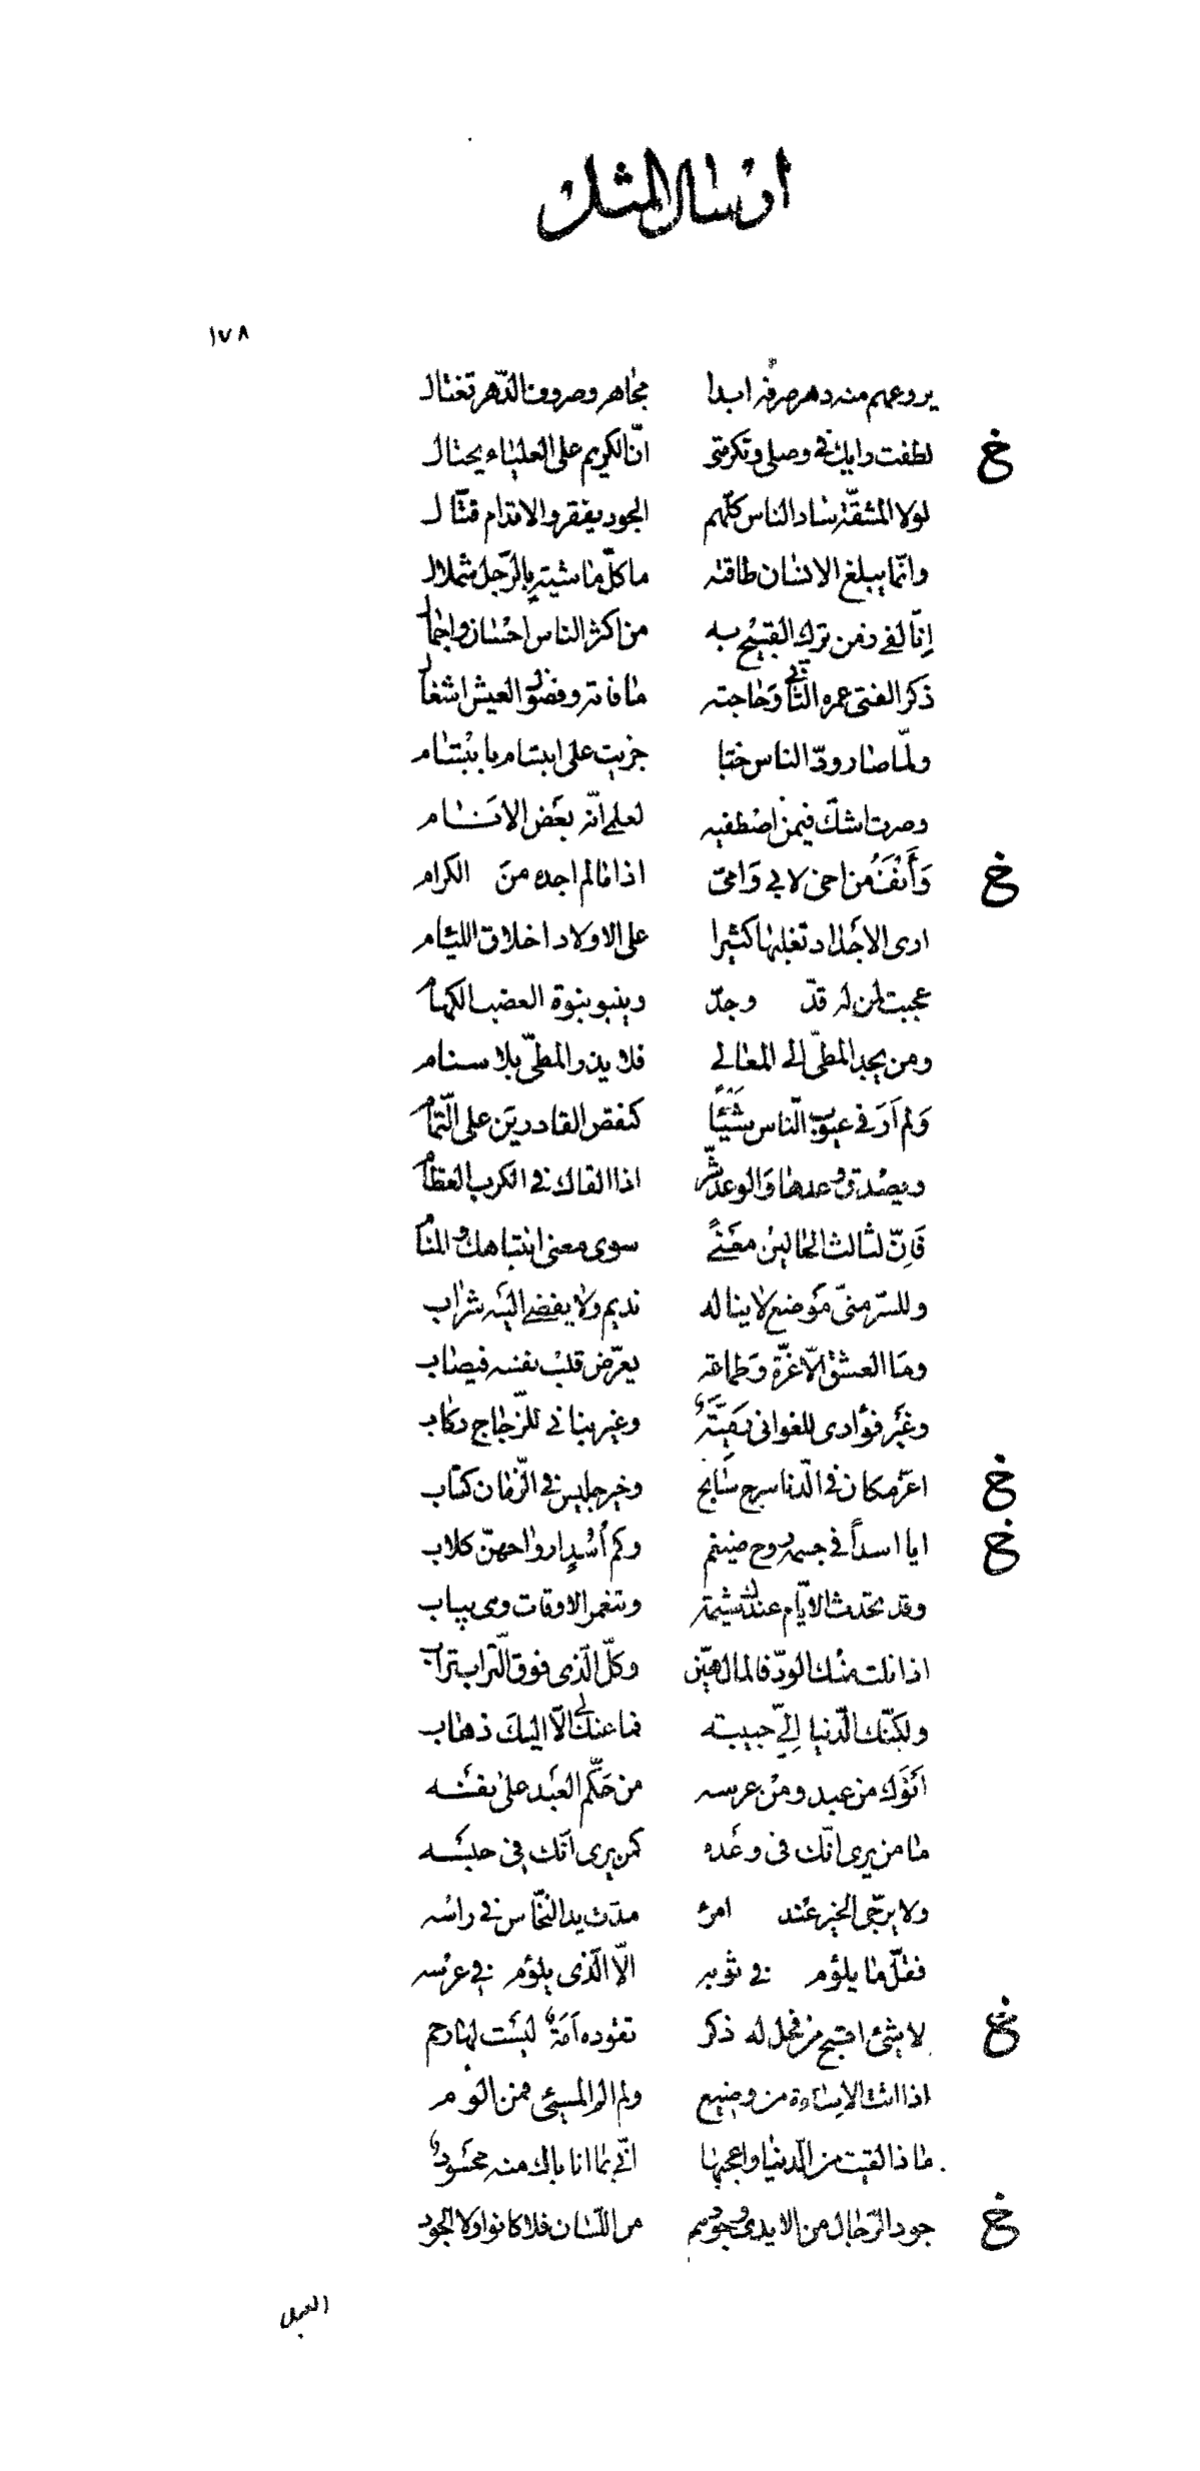 ارسال المثل
١٧٨
يروعهم منه دهر صرفه ابدا مجاهر وصروف الدّهر تغتال
خ لطفت رايك في وصلي وتكرمتي انّ الكريم على العلياء يحتال
لولا المشقّة ساد الناس كلّهم الجود يفقر والاقدام قتّال
وانّما يبلغ الانسان طاقته ما كلّ ماشيةٍ بالرّجل شملال
اِنّا لفي زمن ترك القبيح به من اكثر الناس احسان واجمال
ذكر الفتى عمره الثاني وحاجته ما فاته وفضول العيش اشغال
ولمّا صار ودّ الناس خبّا جزيت على ابتسام بابتسام
وصرت اشكّ فيمن اصطفيه لعلمي انّه بعض الانام
خ وَأَنَفُ من اخي لابي وَامّي اذا مالم اجده من الكرام
ارى الاجداد تغلبها كثيرا على الاولاد اخلاق اللئام
عجبت لمن له قدّ وحدّ وينبو نبوة العضب الكهام
ومن يجد المطيّ الى المعالي فلا يذر المطيّ بلا سنام
وَلم اَرَ في عيوب النّاس شَيْئًا كنقص القادرين على التّمام
ويصدق وعدها والوعد شرّ اذا القاك في الكرب العظام
فَاِنّ لثالث الحالين معنىً سوى معنى انتباهك والمنام
وللسّر منّي موضع لا يناله نديم ولا يفضي اليه شراب
وما العشق الّا غرّة وطماعة يعرّض قلب نفسه فيصاب
وغير فؤادى للغوانى رميّة وغير بناني للزّجاج ركاب
خ اعزّ مكان في الدّنا سرج سابح وخير جليس في الزّمان كتاب
خ ايا اسداً في جسمه روح ضيغم وكم أُسْدٍ ارواحهنّ كلاب
وقد تحدث الايّام عندك شيمة وتنغمر الاوقات وهى يباب
اذا نلت منك الودّ فالمال هيّن وكلّ الّذى فوق التّراب تراب
ولكنّك الدّنيا اِليّ حبيبة فما عنك لي الّا اليك ذهاب
اَنوك من عبد ومن عرسه من حكّم العبد على نفسه
ما من يرى انّك في وعده كمن يرى انّك في حبسه
ولا يرجّى الخير عند امرئ مدّت يد النخّاس في راسه
فقلّ ما يلؤم في ثوبه الّا الّذى يلؤم في غرسه
خ لا شئ اقبح من فحل له ذكر تقوده اَمَة ليست لها رحم
اذا اتت الاساءة من وضيع ولم الم المسيئ فمن الوم
ماذا لقيت من الدّنيا واعجبها انّي بما انا باك منه محسود
خ جود الرّجال من الايدى وجودهم من اللّسان فلا كانوا ولا الجود